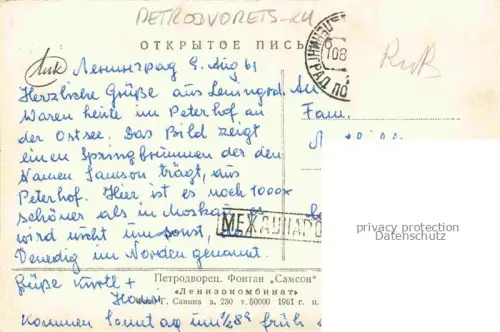 PETRODVORETS-RU
ОТКРЫТОЕ ПИСЬ
108
RuB
Ленинград 9. Aug 61
Herzliche Grüße aus Leningrd.
Waren heute im Peterhof an
der Ostsee. Das Bild zeigt
einen Springbrunnen der den
Namen Samson trägt, aus
Peterhof. Hier ist es noch 1000x
schöner als in Moskau
wird nicht umsonst,
Venedig im Norden genannt.
Grüße Kurtl +
Hansi
Kommen Sonntag um 1/28h früh
An
Fam.
МЕЖДУНАРО
privacy protection
Datenschutz
Петродворец. Фонтан „Самсон"
«Ленизокомбинат»
Г. Савина з. 230 т. 50000 1961 г.